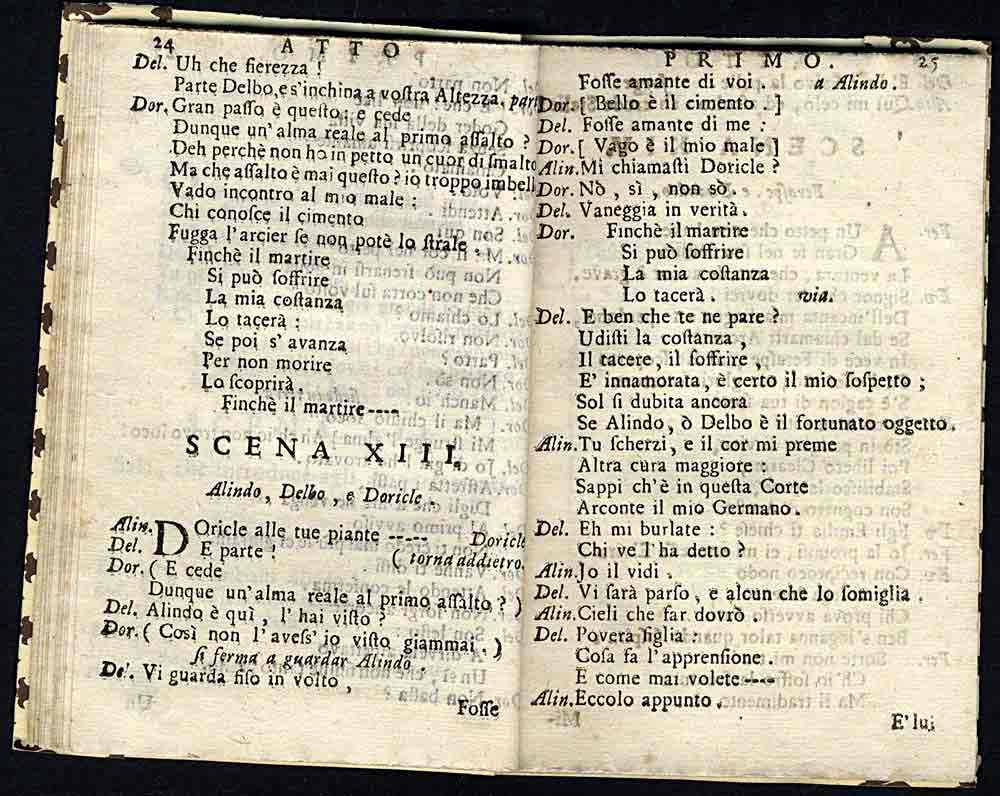 24 ATTO
Del. Uh che fierezza !
Parte Delbo, e s'inchina a vostra Altezza. parte
Dor. Gran passo è questo: e cede
Dunque un' alma reale al primo assalto ?
Deh perchè non ho in petto un cuor di smalto
Ma che assalto è mai questo ? io troppo imbell
Vado incontro al mio male :
Chi conosce il cimento
Fugga l'arcier se non potè lo strale .
Finchè il martire
Si può soffrire
La mia costanza
Lo tacerà :
Se poi s' avanza
Per non morire
Lo scoprirà.
Finchè il martire----
SCENA XIII.
Alindo, Delbo, e Doricle.
Alin. DOricle alle tue piante ----- Doricle
Del. E parte ! ( torna addietro.
Dor. ( E cede
Dunque un'alma reale al primo assalto ? )
Del. Alindo è quì, l' hai visto ?
Dor. ( Così non l'avess' io visto giammai. )
si ferma a guardar Alindo.
De'. Vi guarda fiso in volto ,
Fosse
PRIMO. 25
Fosse amante di voi . a Alindo.
Dor. [ Bello è il cimento . ]
Del. Fosse amante di me :
Dor. [ Vago è il mio male ]
Alin. Mi chiamasti Doricle ?
Dor. Nò , sì , non sò .
Del. Vaneggia in verità.
Dor. Finchè il martire
Si può soffrire
La mia costanza
Lo tacerà . via.
Del. E ben che te ne pare ?
Udisti la costanza ,
Il tacere, il soffrire ,
E' innamorata, è certo il mio sospetto ;
Sol si dubita ancora
Se Alindo, ò Delbo è il fortunato oggetto.
Alin. Tu scherzi, e il cor mi preme
Altra cura maggiore :
Sappi ch'è in questa Corte
Arconte il mio Germano .
Del. Eh mi burlate :
Chi ve l'ha detto ?
Alin. Jo il vidi .
Del. Vi sarà parso , e alcun che lo somiglia .
Alin. Cieli che far dovrò .
Del. Povera figlia :
Cosa fa l'apprensione .
E come mai volete ----
Alin. Eccolo appunto .
E' lui